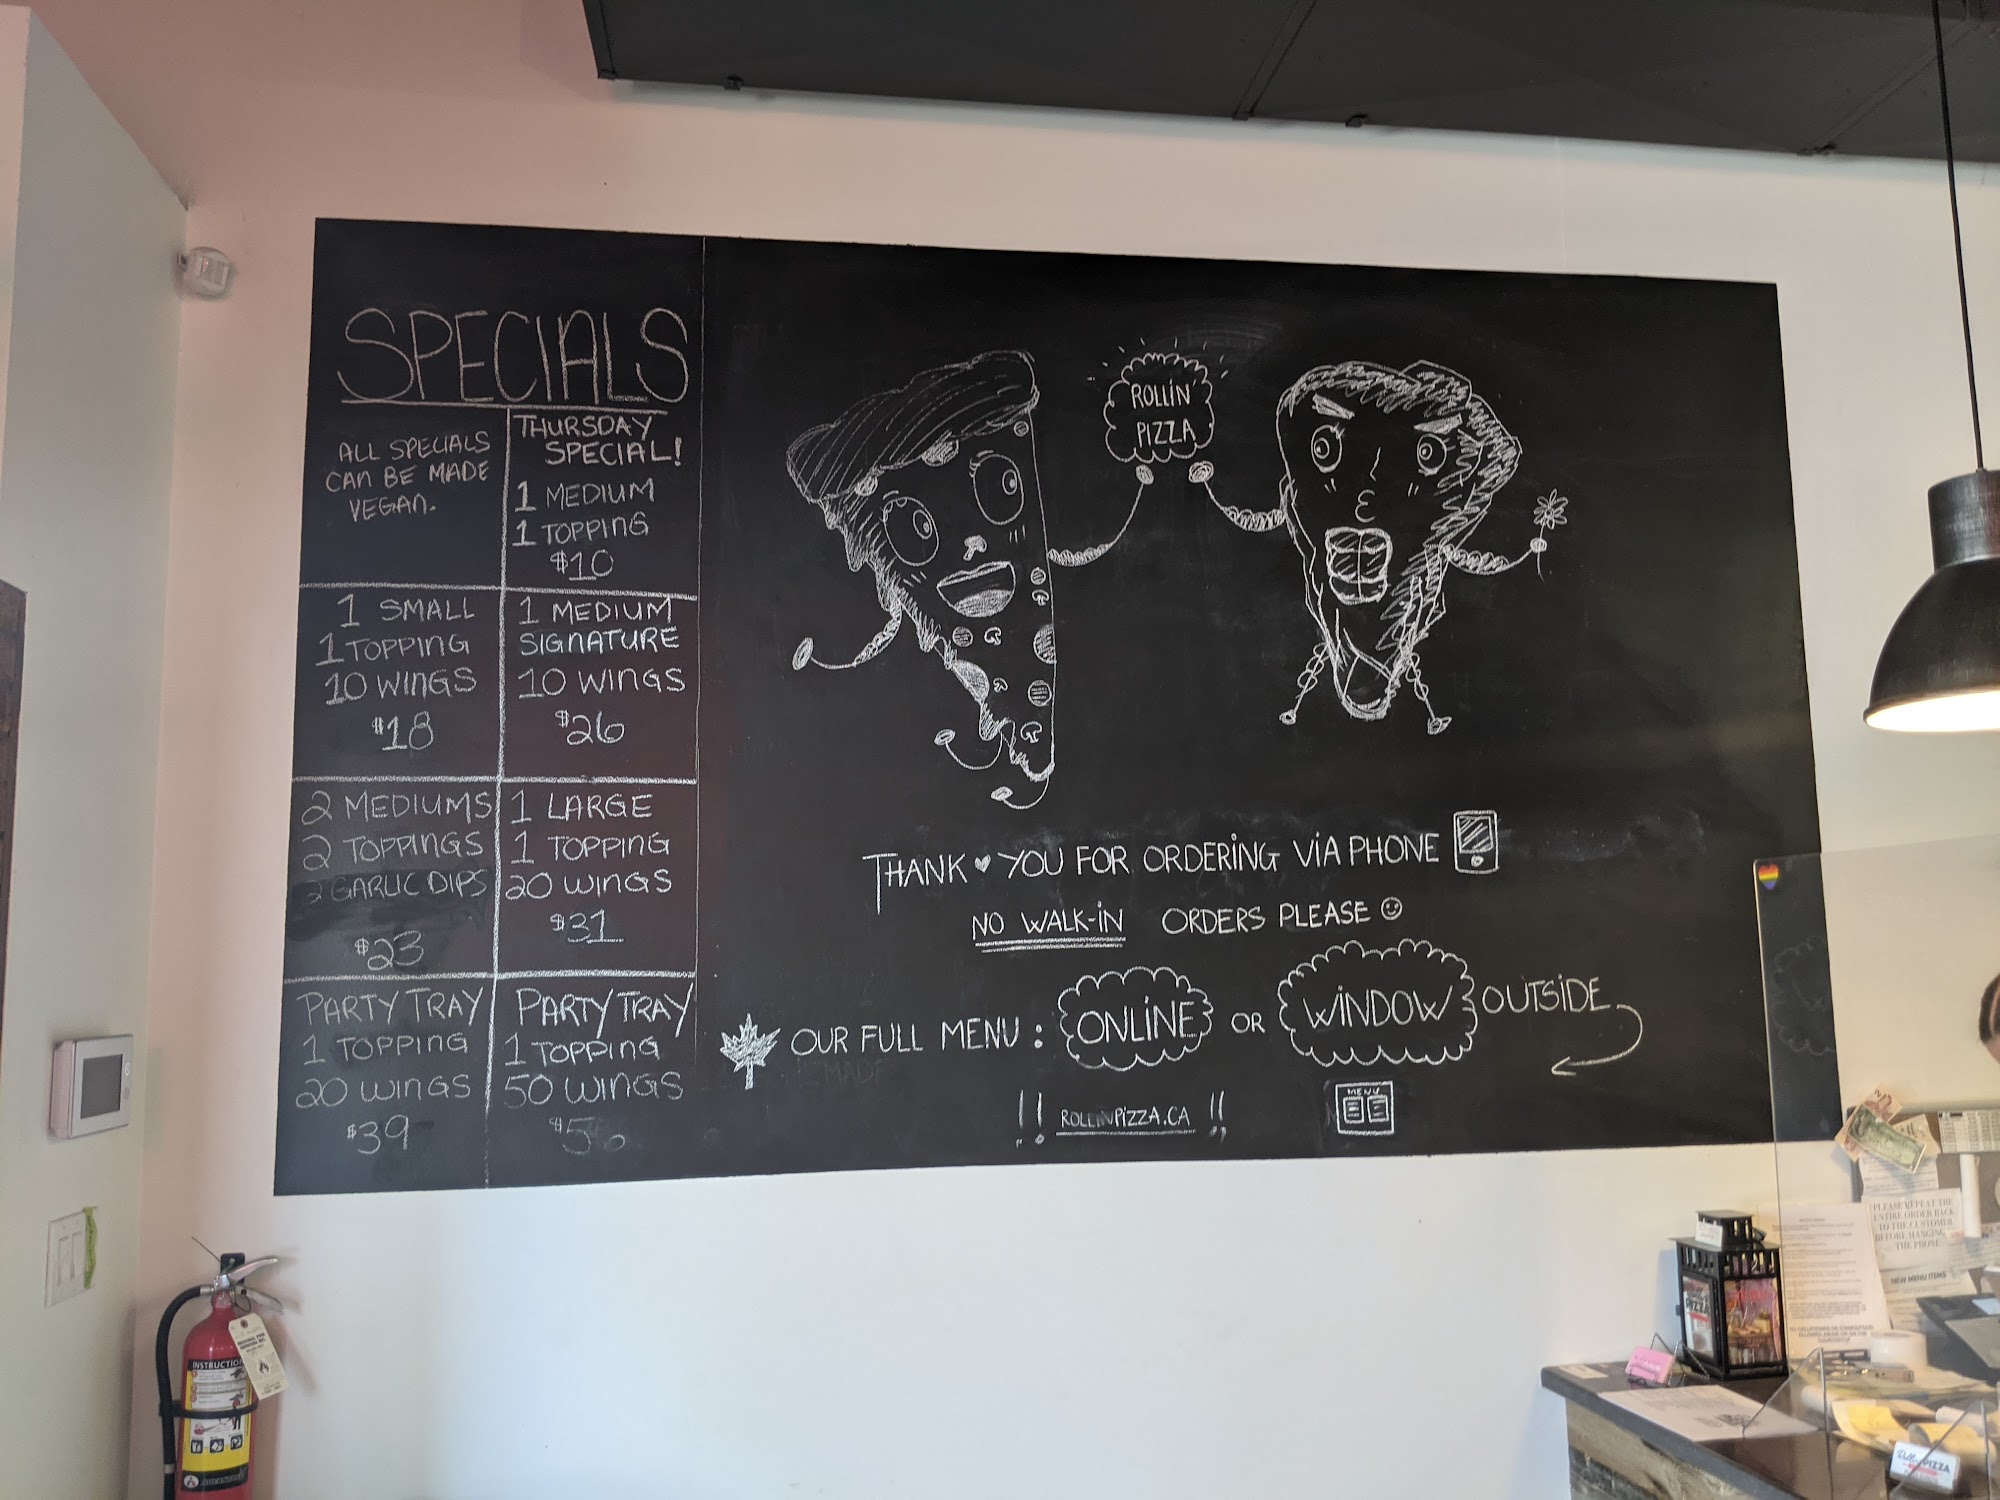 SPECIALS
ALL SPECIALS
CAN BE MADE
VEGAN.
THURSDAY
SPECIAL!
1 MEDIUM
1 TOPPING
$10
1 SMALL
1 TOPPING
10 WINGS
$18
1 MEDIUM
SIGNATURE
10 WINGS
$26
2 MEDIUMS
2 TOPPINGS
2 GARLIC DIPS
$23
1 LARGE
1 TOPPING
20 WINGS
$31
PARTY TRAY
1 TOPPING
20 WINGS
$39
PARTY TRAY
1 TOPPING
50 WINGS
$56
ROLLIN'
PIZZA
THANK YOU FOR ORDERING VIA PHONE
NO WALK-IN ORDERS PLEASE
OUR FULL MENU: ONLINE OR WINDOW OUTSIDE
!! ROLLINPIZZA.CA !!
MENU
INSTRUCTIO
PLEASE REPEAT THE
ENTIRE ORDER BACK
TO THE CUSTOMER
BEFORE HANGING
THE PHONE
NEW MENU ITEMS
PIZZA
PIZZA